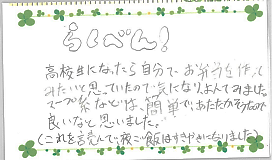 らくべん！
高校生になったら自分で、お弁当を作って
みたいと思っていたので気になり、よんでみました。
スープ系などは、簡単で、あたたかそうなので
良いなと思いました。
(これを読んで夜ご飯はすきやきになりました)